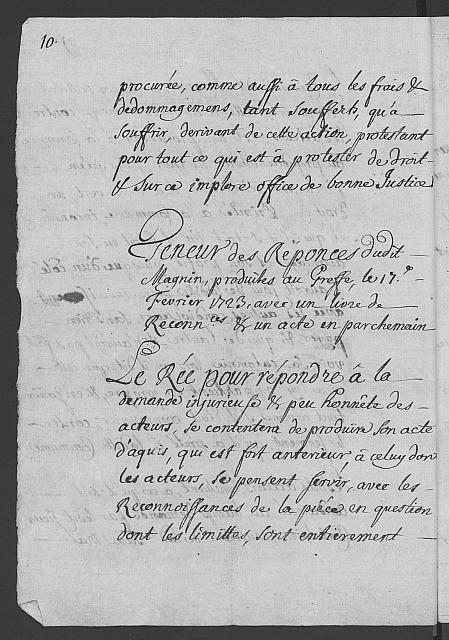 10.
procurée, comme aussi à tous les frais &
dedommagemens, tant soufferts, qu'a
souffrir, derivant de cette action, protestant
pour tout ce qui est à protester de droit
& sur ce implore office de bonne Justice
Teneur des Réponces dudit
Magnin, produites au Greffe, le 17.e
Fevrier 1723, avec un livre de
Reconn.ces & un acte en parchemain
Le Rée pour répondre â la
demande injurieuse & peu honnête des
acteurs, se contentera de produire son acte
d'aquis, qui est fort anterieur, à celuy don
les acteurs, se pensent servir, avec les
Reconnoissances de la piéce en question
dont les limittes, sont entierement